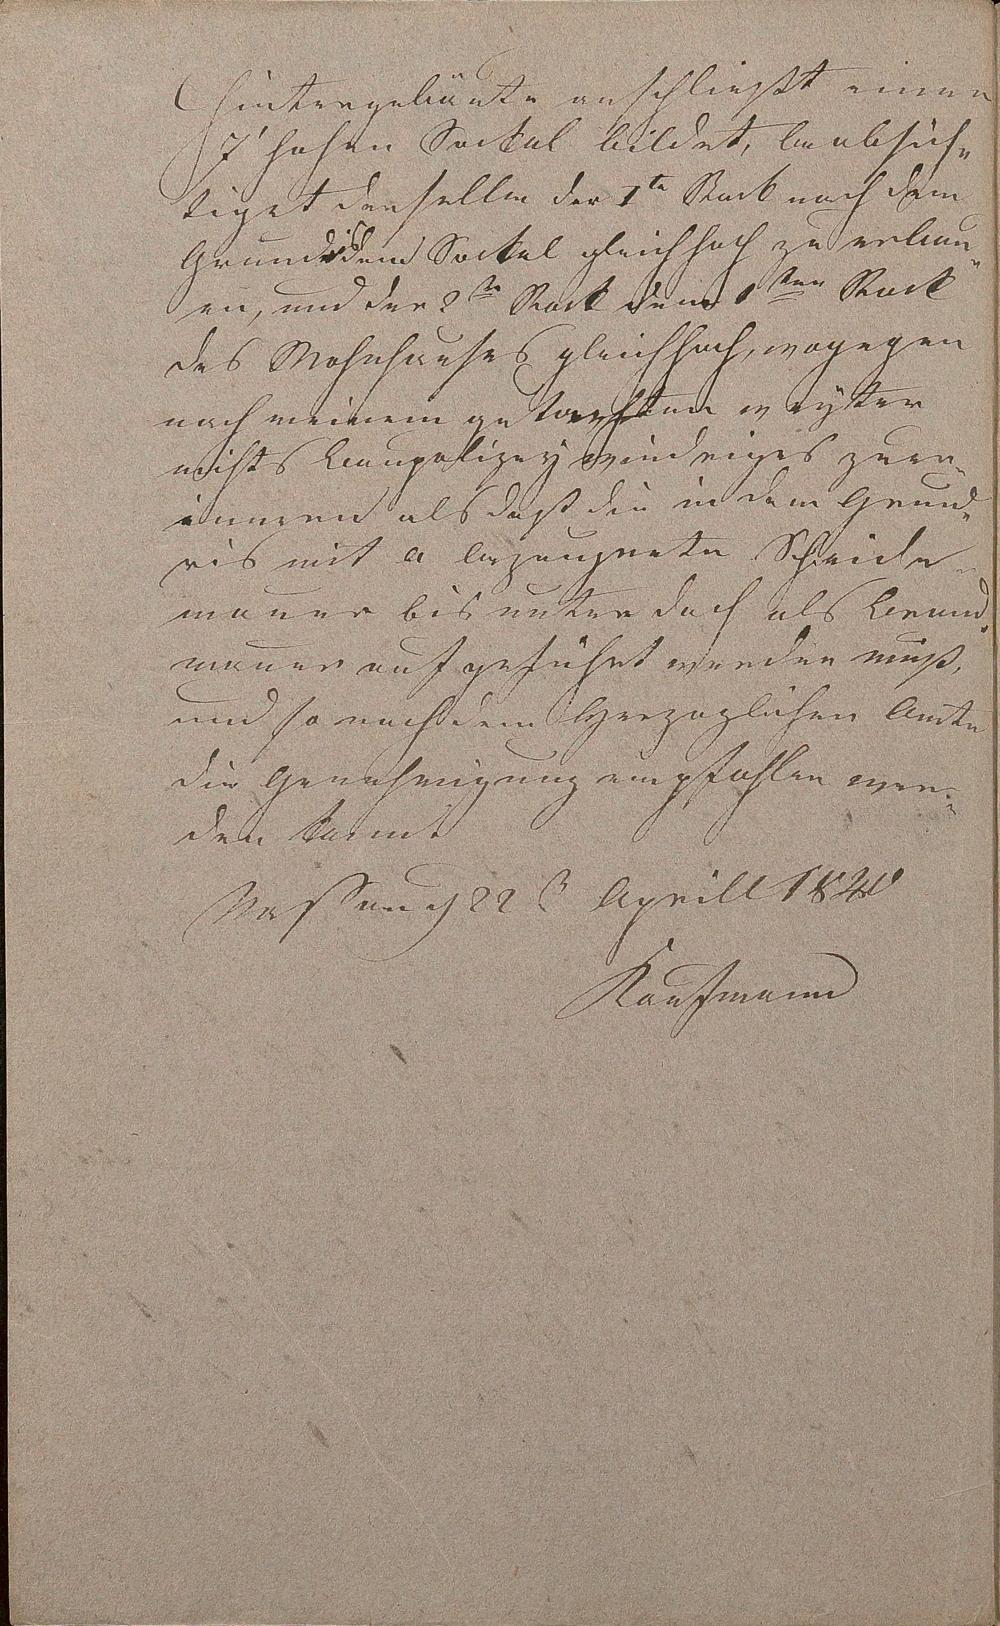 Hintergebäute anschließt einen
7' hohen Sockel bildet, beabsich„
tiget derselbe der 1te Stock nach dem
Grundriß dem Sockel gleich hoch zu erbau„
en, und der 2te Stock dem 1ten Stock
des Wohnhauses gleich hoch, wogegen
nach meinem
nichts baupolizey wiedriges zu er„
innern als daß die in dem Grund„
ris mit a bezeugnete Scheide„
mauer bis unter dach als Brand„
mauer aufgeführt werden muß,
und so nach dem Herzoglichen Amte
die Genehmigung empfohlen wer„
den kann.
22 Aprill 1840
Kaufmann